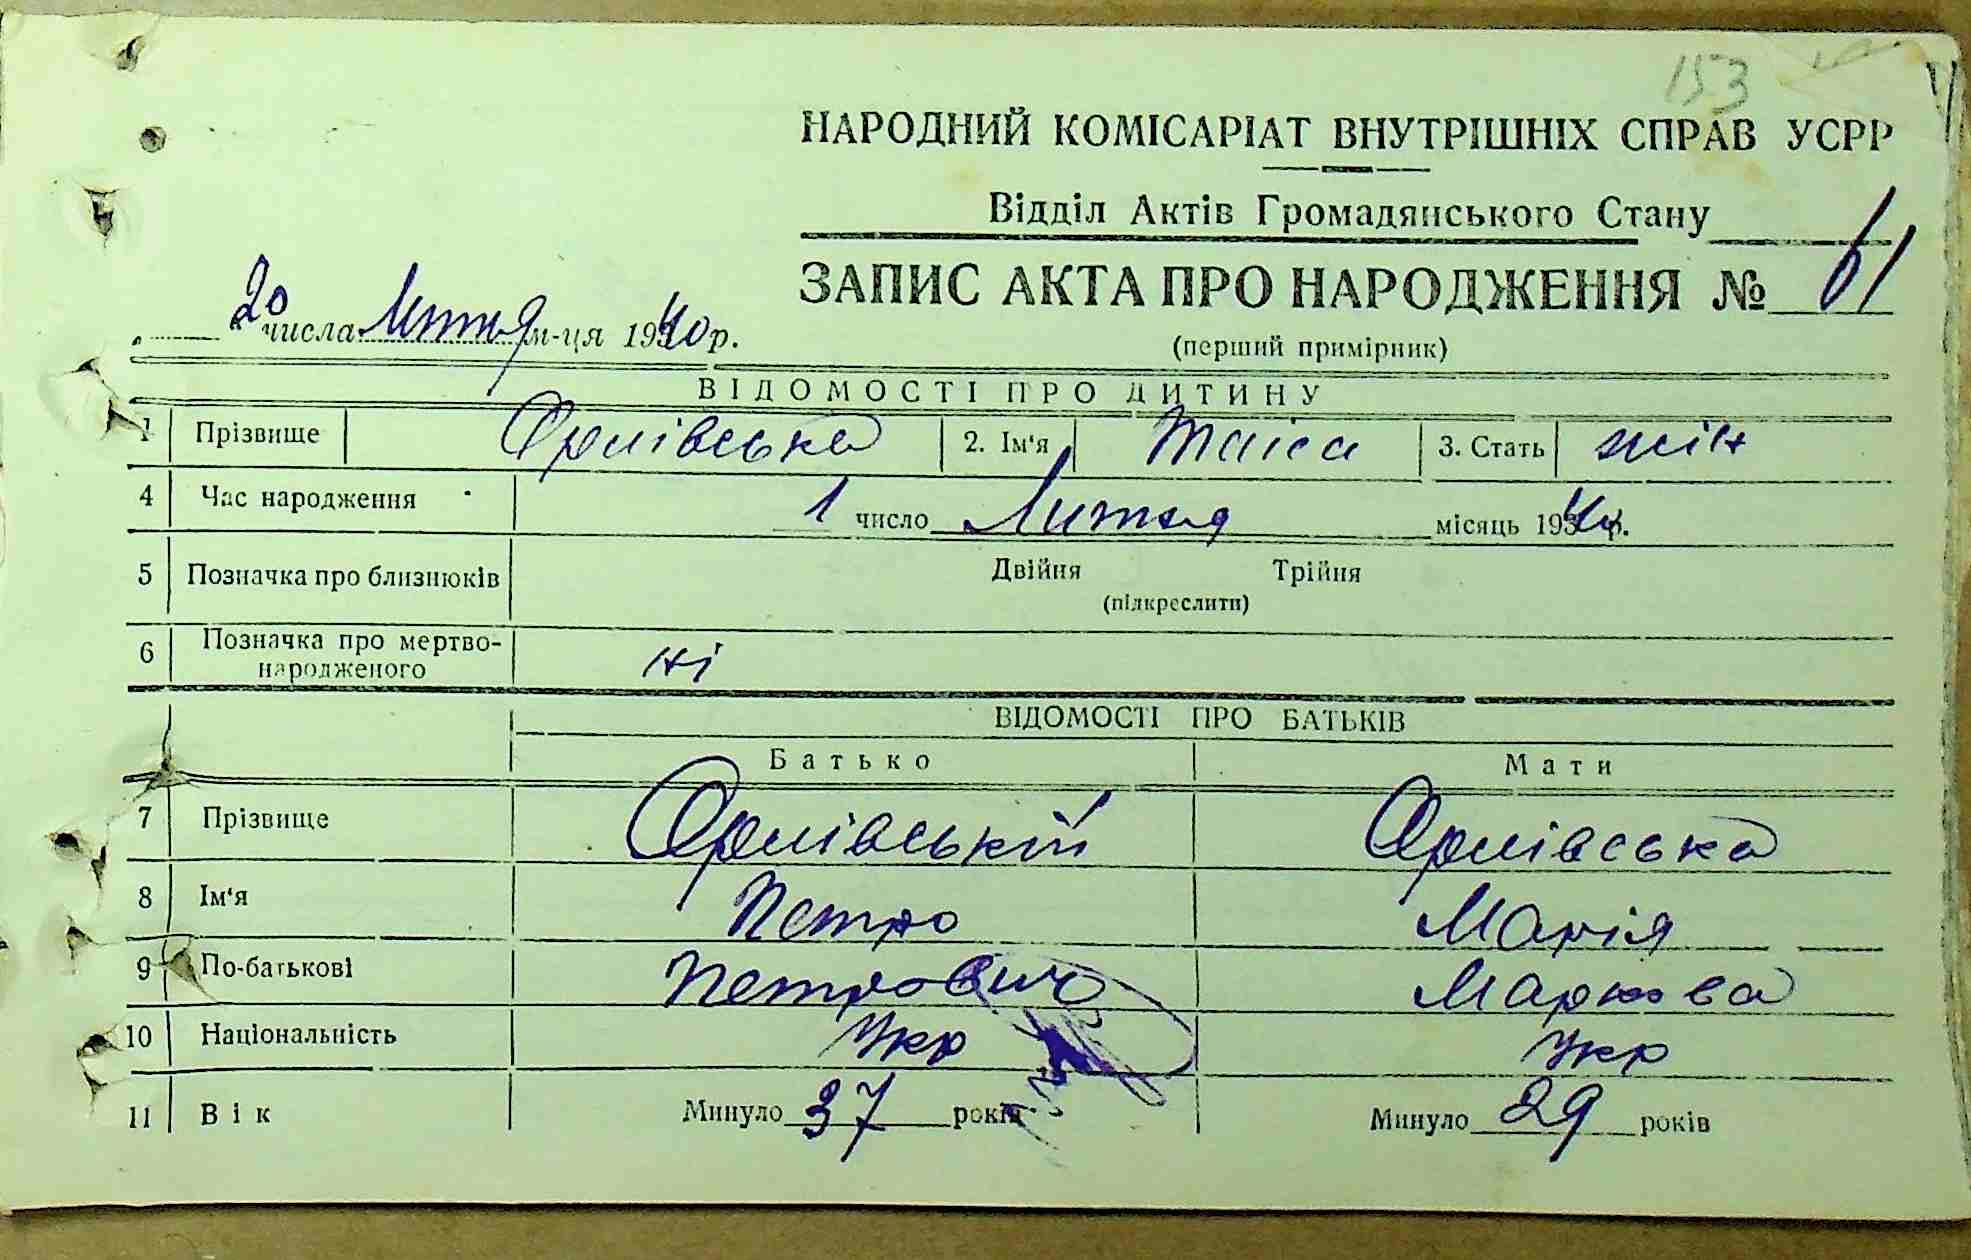 153
НАРОДНИЙ КОМІСАРІАТ ВНУТРІШНІХ СПРАВ УСРР
Відділ Актів Громадянського Стану
ЗАПИС АКТА ПРО НАРОДЖЕННЯ № 61
20 числа Лютня м-ця 1940 р.
(перший примірник)
ВІДОМОСТІ ПРО ДИТИНУ
1 Прізвище Орлівська 2. Ім'я Таіса 3. Стать жін
4 Час народження 1 число Лютня місяць 1940 р.
5 Позначка про близнюків Двійня Трійня
(підкреслити)
6 Позначка про мертво-
народженого ні
ВІДОМОСТІ ПРО БАТЬКІВ
Батько Мати
7 Прізвище Орлівській Орлівська
8 Ім'я Петро Марія
9 По-батькові Петрович Маркова
10 Національність Укр Укр
11 Вік Минуло 37 років Минуло 29 років